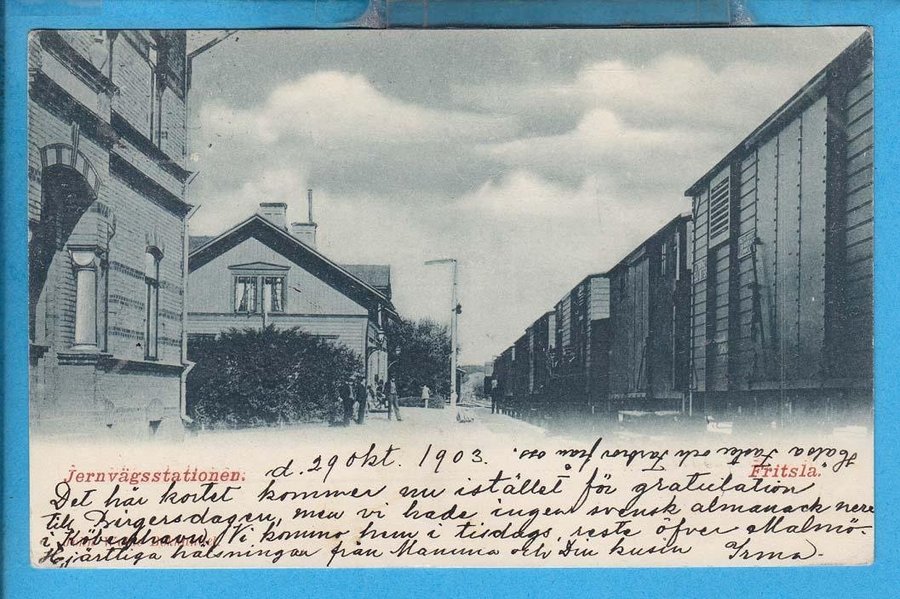 Jernvägsstationen.
Fritsla.
d. 29 Okt. 1903.
Helsa Faster och Farbror från oss.
Det här kortet kommer nu istället för gratulation
till Birgersdagen, men vi hade ingen svensk almanack nere
i Köbenhavn. Vi kommo hem i tisdags, reste öfver Malmö.
Hjärtliga hälsningar från Mamma och Din kusin Irma.